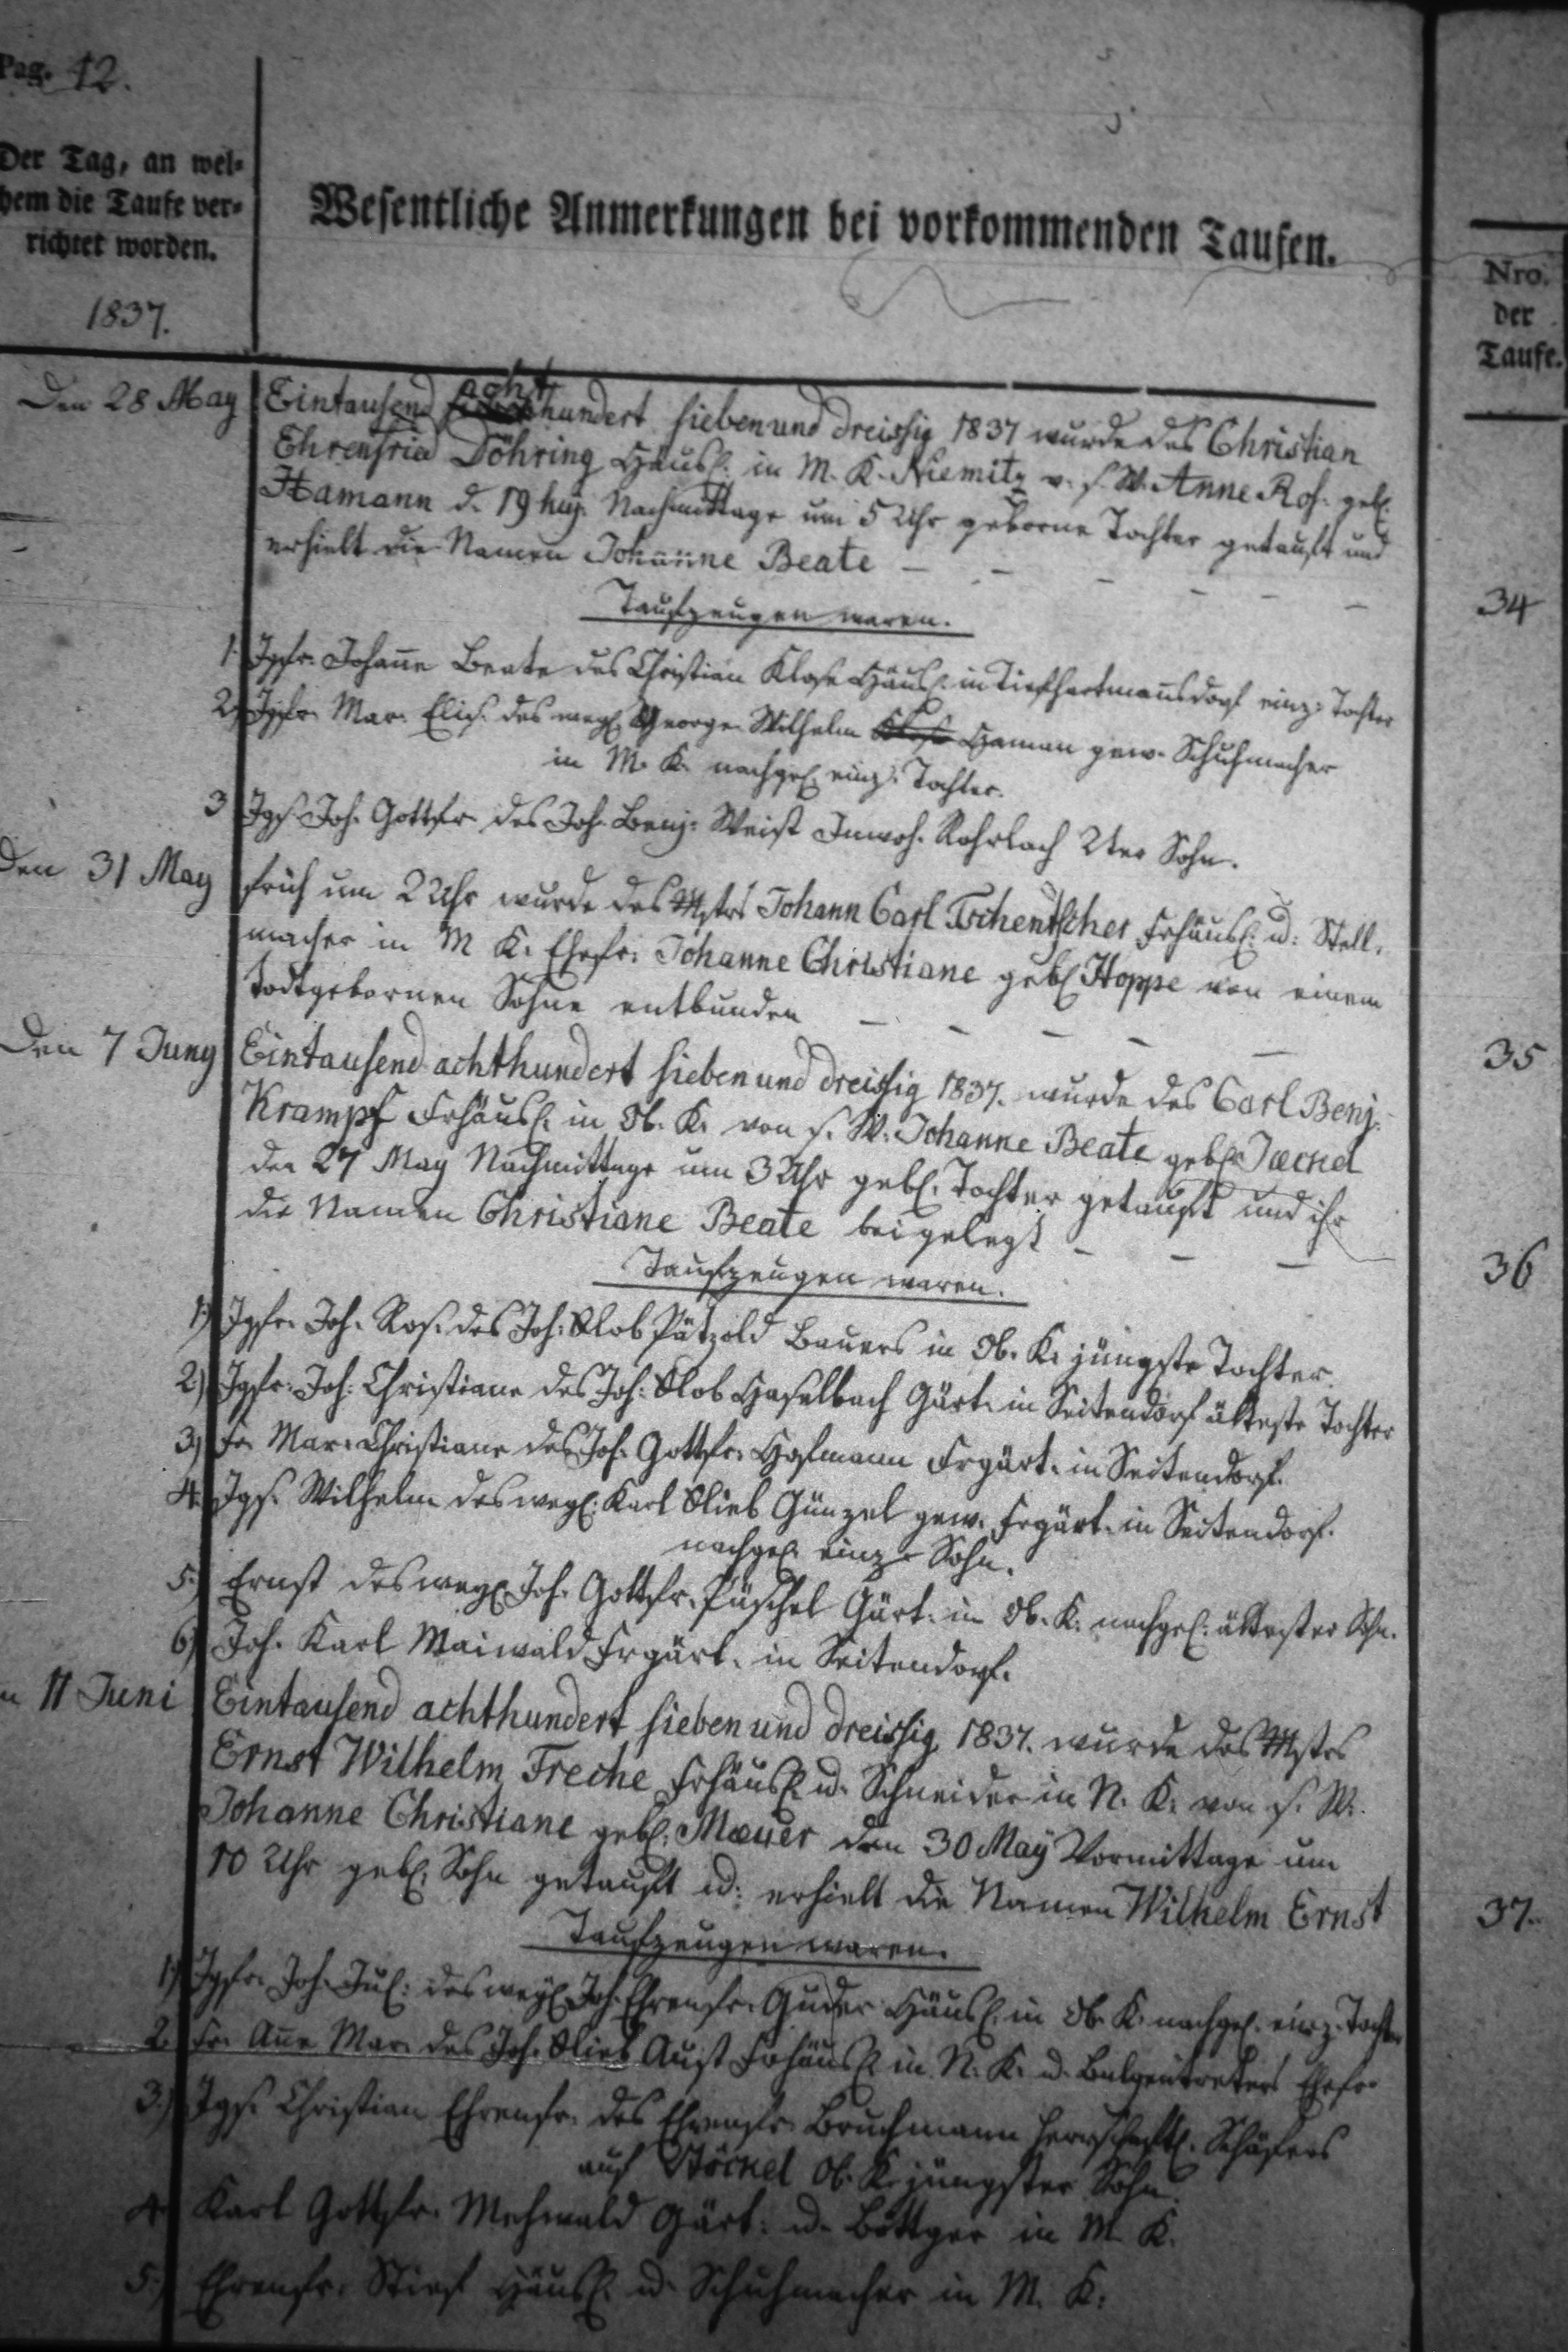 Pag. 12.
Der Tag, an wel-
chem die Taufe ver-
richtet worden.
Wesentliche Anmerkungen bei vorkommenden Taufen.
Nro.
der
Taufe.
1837.
Den 28 May
Eintausend acht hundert sieben und dreissig 1837 wurde des Christian
Ehrenfried Döhring Häusl. in M. K. Niemitz v. s. W. Anne Ros. geb.
Hamann d. 19 huj. Nachmittage um 5 Uhr geborne Tochter getauft und
erhielt die Namen Johanne Beate – – – – – –
34
Taufzeugen waren.
1. Jgfr. Johanne Beate des Christian Klose Häusl. in Tiefhartmannsdorf einz. Tochter
2. Jgfr. Mar. Elis. des weyl. George Wilhelm Haman gew. Schuhmacher
in M. K. nachgel. einz. Tochter.
3 Jgs. Joh. Gottfr. des Joh. Benj. Weist Inwoh. Rohrlach 2ter Sohn.
Den 31 May
früh um 2 Uhr wurde des Mstrs Johann Carl Tschentscher Frhäusl. u. Stell-
macher in M K. Ehefr. Johanne Christiane geb. Hoppe von einem
todtgebornen Sohne entbunden – – – – –
35
Den 7 Juny
Eintausend achthundert sieben und dreissig 1837. wurde des Carl Benj.
Krampf Frhäusl. in Ob. K. von s. W. Johanne Beate geb. Jæckel
den 27 May Nachmittage um 3 Uhr geb. Tochter getauft und ihr
die Namen Christiane Beate beigelegt – – –
36
Taufzeugen waren.
1.) Jgfr. Joh. Ros. des Joh. Glob Pätzold Bauers in Ob. K. jüngste Tochter.
2.) Jgfr. Joh. Christiane des Joh. Glob Haselbach Gärt. in Seitendorf älteste Tochter
3.) Fr. Mar. Christiane des Joh. Gottfr. Hofmann Frgärt. in Seitendorf.
4. Jgs. Wilhelm des weyl. Karl Glieb Günzel gew. Frgärt. in Seitendorf.
nachgel. einz. Sohn.
5.) Ernst des weyl. Joh. Gottfr. Püschel Gärt. in Ob. K. nachgel. ältester Sohn.
6.) Joh. Karl Maiwald Frgärt. in Seitendorf.
11 Juni
Eintausend achthundert sieben und dreissig 1837. wurde des Mstrs
Ernst Wilhelm Freche Frhäusl. u. Schneider in N. K. von s. W.
Johanne Christiane geb. Mæuer den 30 May Vormittage um
10 Uhr geb. Sohn getauft u. erhielt die Namen Wilhelm Ernst
37.
Taufzeugen waren.
1.) Jgfr. Joh. Jul. des weyl. Joh. Ehrenfr. Guder Häusl. in Ob. K. nachgel. einz. Tochter
2. Fr. Anne Mar. des Joh. Glieb Aust Frhäusl. in N. K. u. Balgentreters Ehefr.
3.) Jgs. Christian Ehrenfr. des Ehrenfr. Bruchmann herrschaftl. Schäfers
auf Ob. K. jüngster Sohn.
4. Karl Gottfr. Mehwald Gärt. u. Böttger in M. K.
5. Ehrenfr. Stief Häusl. u. Schuhmacher in M. K.